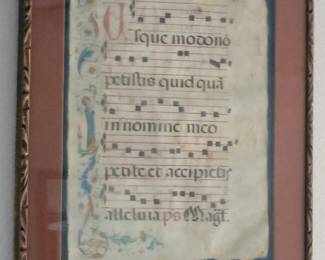 Usque modo nō
petistis quid quā
in nomine meo
petite et accipietis
alleluia ps Magt.